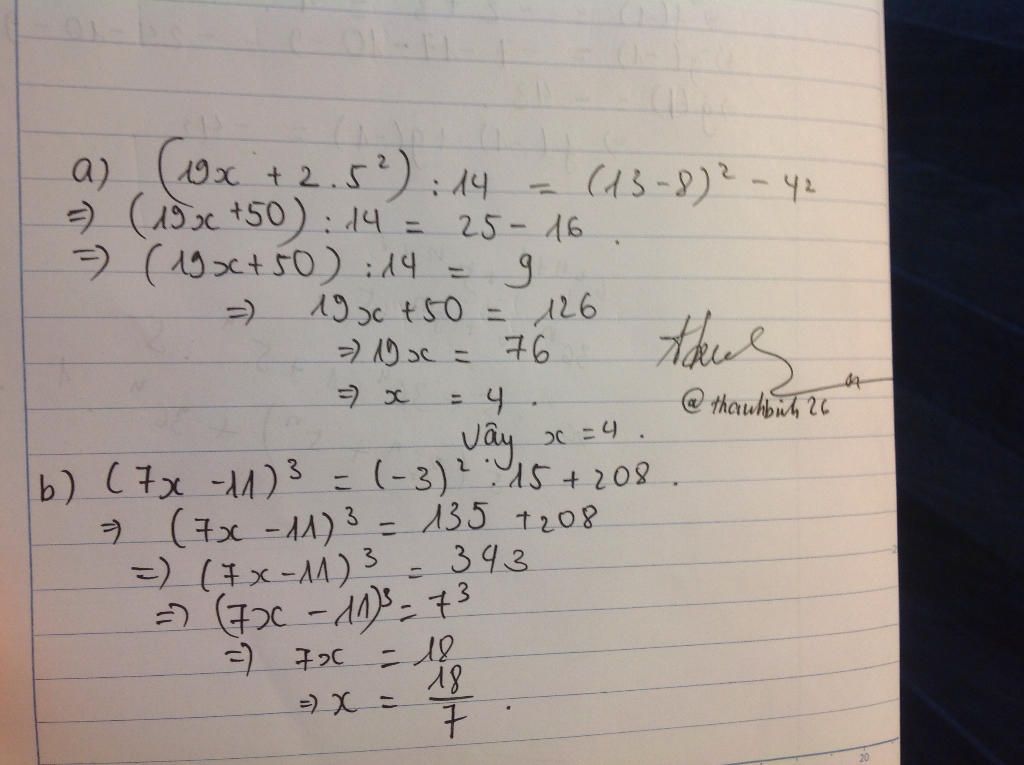 a) (19x + 2.5²) : 14 = (13-8)² - 4²
⇒ (19x+50) : 14 = 25 - 16.
⇒ (19x+50) : 14 = 9
⇒ 19x+50 = 126
⇒ 19x = 76
⇒ x = 4.
@thanhbinh26
Vậy x = 4.
b) (7x -11)³ = (-3)² . 15 + 208.
⇒ (7x -11)³ = 135 + 208
⇒ (7x -11)³ = 343
⇒ (7x -11)³ = 7³
⇒ 7x = 18
⇒ x = 18/7.
20